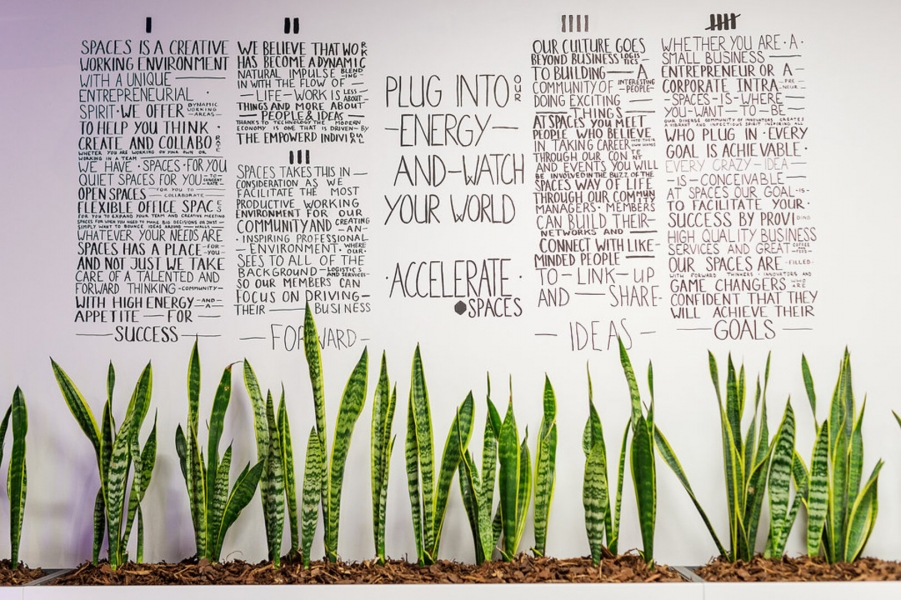 I
SPACES IS A CREATIVE
WORKING ENVIRONMENT
WITH A UNIQUE
ENTREPRENEURIAL
SPIRIT·WE OFFER DYNAMIC WORKING AREAS
TO HELP YOU THINK·
CREATE AND COLLABO
WHETER YOU ARE WORKING ON YOUR OWN OR
WORKING IN A TEAM
WE HAVE·SPACES·FOR YOU
QUIET SPACES FOR YOU
OPEN SPACES FOR YOU TO COLLABORATE
FLEXIBLE OFFICE SPACES
FOR YOU TO EXPAND YOUR TEAM AND CREATIVE MEETING
SPACES FOR WHEN YOU NEED TO MAKE BIG DECISIONS OR JUST
SIMPLY WANT TO BOUNCE IDEAS AROUND
WHATEVER YOUR NEEDS ARE
SPACES HAS A PLACE FOR YOU
AND NOT JUST WE TAKE
CARE OF A TALENTED AND
FORWARD THINKING COMMUNITY
WITH HIGH ENERGY AND A
APPETITE — FOR —
SUCCESS
II
WE BELIEVE THAT WORK
HAS BECOME A DYNAMIC
NATURAL IMPULSE BLENDING
IN WITH THE FLOW OF
LIFE—WORK IS LESS ABOUT
THINGS AND MORE ABOUT
PEOPLE & IDEAS
THANKS TO TECHNOLOGY THE MODERN
ECONOMY IS ONE THAT IS DRIVEN BY
THE EMPOWERD INDIVI
III
SPACES TAKES THIS IN
CONSIDERATION AS WE
FACILITATE THE MOST
PRODUCTIVE WORKING
ENVIRONMENT FOR OUR
COMMUNITY AND CREATING AN
INSPIRING PROFESSIONAL
ENVIRONMENT WHERE OUR
SEES TO ALL OF THE
BACKGROUND LOGISTICS AND SERVICES
SO OUR MEMBERS CAN
FOCUS ON DRIVING
THEIR — BUSINESS
FORWARD
PLUG INTO OUR
—ENERGY—
AND—WATCH
YOUR WORLD
·ACCELERATE·
SPACES
IIII
OUR CULTURE GOES
BEYOND BUSINESS
TO BUILDING — A
COMMUNITY OF INTERESTING PEOPLE
DOING EXCITING
THINGS
AT SPACES YOU MEET
PEOPLE WHO BELIEVE
IN TAKING CAREER
THROUGH OUR
AND EVENTS YOU WILL
BE INVOLVED IN THE BUZZ OF THE
SPACES WAY OF LIFE
THROUGH OUR COMMUN
MANAGERS·MEMBERS
CAN BUILD THEIR
NETWORKS AND
CONNECT WITH LIKE-
MINDED PEOPLE
TO—LINK—UP
AND — SHARE
IDEAS
WHETHER YOU ARE·A·
SMALL BUSINESS
ENTREPRENEUR OR A
CORPORATE INTRA
-SPACES-IS-WHERE
YOU—WANT—TO—BE
OUR DIVERSE COMMUNITY OF INNOVATORS CREATES
A VIBRANT AND INFECTIOUS SPIRIT
WHO PLUG IN·EVERY
GOAL IS ACHIEVABLE·
EVERY CRAZY—IDEA—
—IS—CONCEIVABLE—
AT SPACES OUR GOAL IS
TO FACILITATE YOUR
SUCCESS BY PROVIDING
HIGH QUALITY BUSINESS
SERVICES AND GREAT
OUR SPACES ARE FILLED
WITH FORWARD THINKERS INNOVATORS AND
GAME CHANGERS WHO ARE
CONFIDENT THAT THEY
WILL ACHIEVE THEIR
GOALS